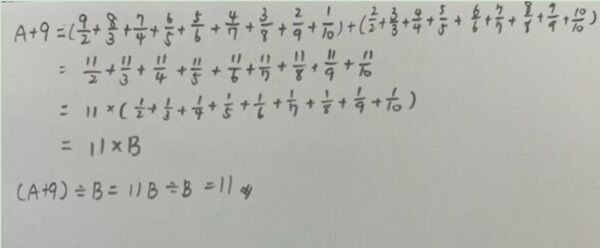 A+9=(9/2+8/3+7/4+6/5+5/6+4/7+3/8+2/9+1/10)+(2/2+3/3+4/4+5/5+6/6+7/7+8/8+9/9+10/10)
= 11/2+11/3+11/4+11/5+11/6+11/7+11/8+11/9+11/10
= 11×(1/2+1/3+1/4+1/5+1/6+1/7+1/8+1/9+1/10)
= 11×B
(A+9)÷B=11B÷B=11